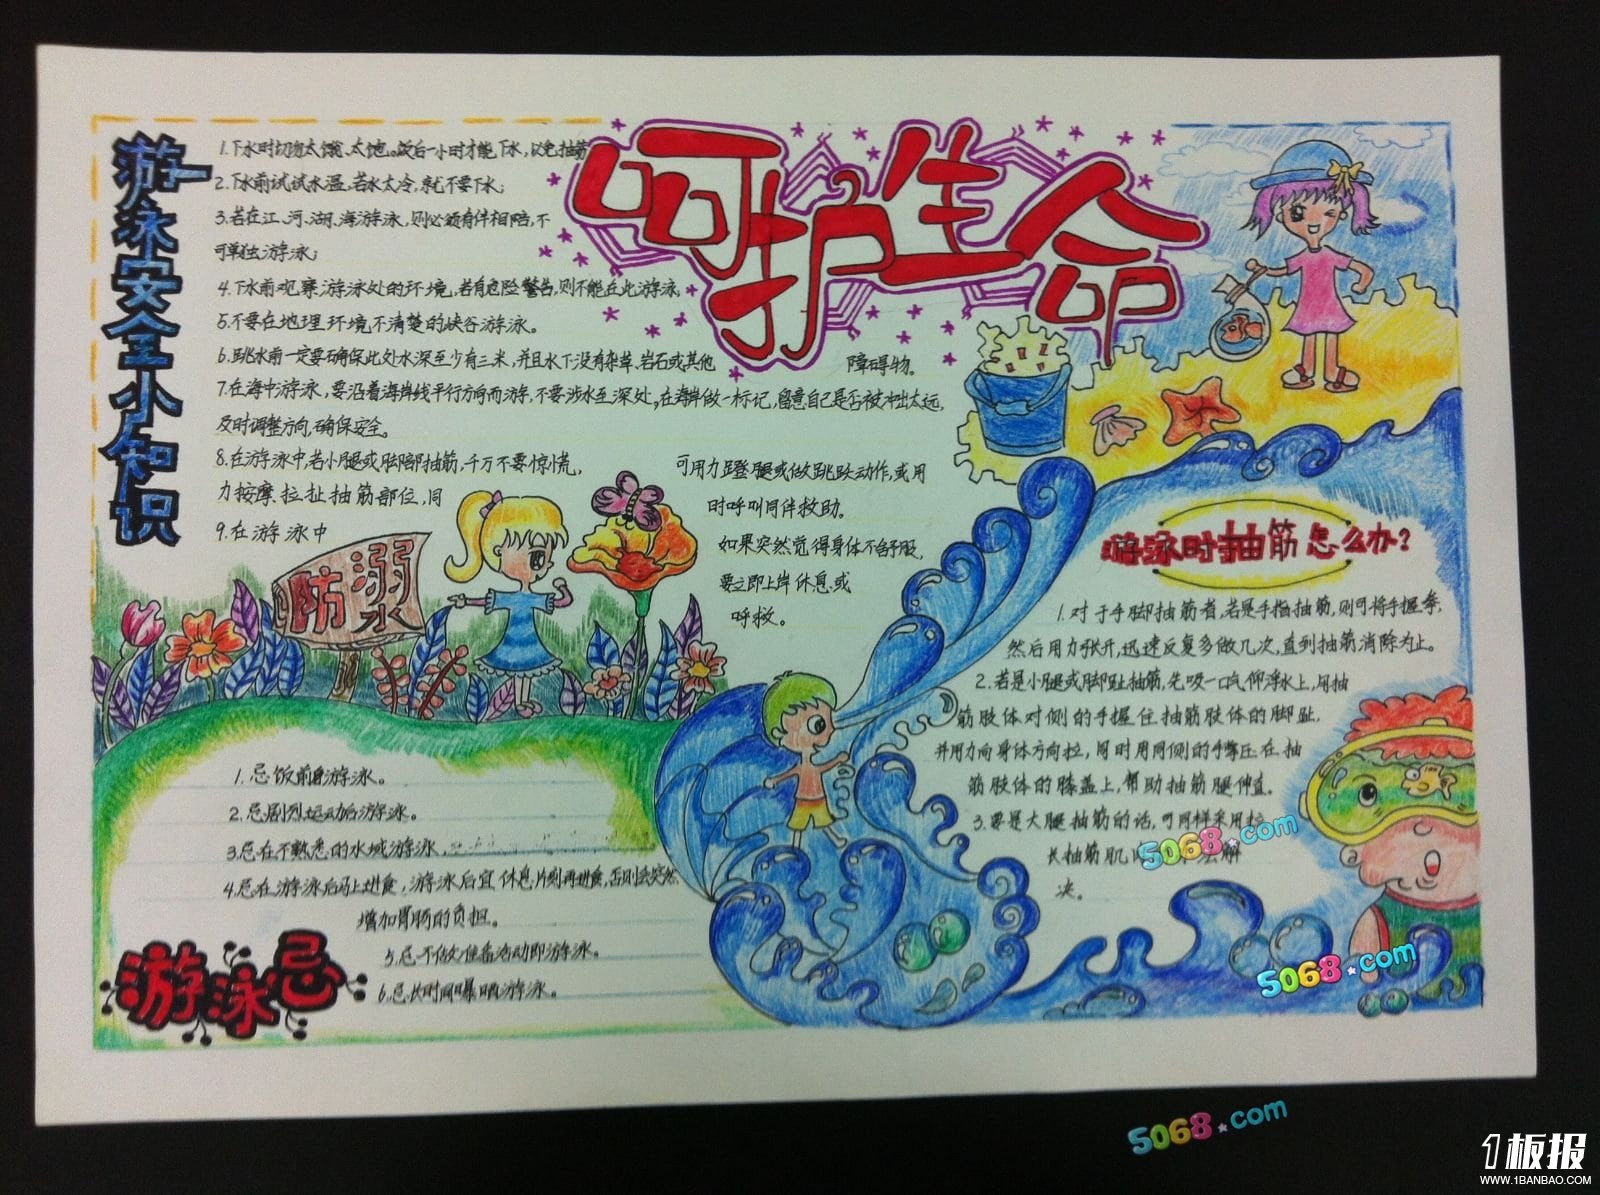 呵护生命
游泳安全小知识
1.下水时切勿太饿、太饱。饭后一小时才能下水,以免抽筋
2.下水前试试水温,若水太冷,就不要下水;
3.若在江、河、湖、海游泳,则必须有伴相陪,不
可单独游泳;
4.下水前观察游泳处的环境,若有危险警告,则不能在此游泳,
5.不要在地理环境不清楚的峡谷游泳。
6.跳水前一定要确保此处水深至少有三米,并且水下没有杂草、岩石或其他 障碍物。
7.在海中游泳,要沿着海岸线平行方向而游,不要涉水至深处,在海岸做一标记,留意自己是否被冲出太远,
及时调整方向,确保安全。
8.在游泳中,若小腿或脚部抽筋,千万不要惊慌, 可用力蹬腿或做跳跃动作,或用
力按摩、拉扯抽筋部位,同 时呼叫同伴救助。
9.在游泳中 如果突然觉得身体不舒服,
要立即上岸休息或
呼救。
防溺水
游泳时抽筋怎么办?
1.对于手脚抽筋者,若是手指抽筋,则可将手握拳,
然后用力张开,迅速反复多做几次,直到抽筋消除为止。
2.若是小腿或脚趾抽筋,先吸一口气仰浮水上,用抽
筋肢体对侧的手握住抽筋肢体的脚趾,
并用力向身体方向拉,同时用同侧的手掌压在抽
筋肢体的膝盖上,帮助抽筋腿伸直。
3.要是大腿抽筋的话,可同样采用拉
长抽筋肌 法解
决。
游泳忌
1.忌饭前游泳。
2.忌剧烈运动后游泳。
3.忌在不熟悉的水域游泳,
4.忌在游泳后马上进食,游泳后宜休息片刻再进食,否则会突然
增加胃肠的负担。
5.忌不做准备活动即游泳。
6.忌长时间曝晒游泳。
5068.com
5068.com
5068.com
1板报
WWW.1BANBAO.COM